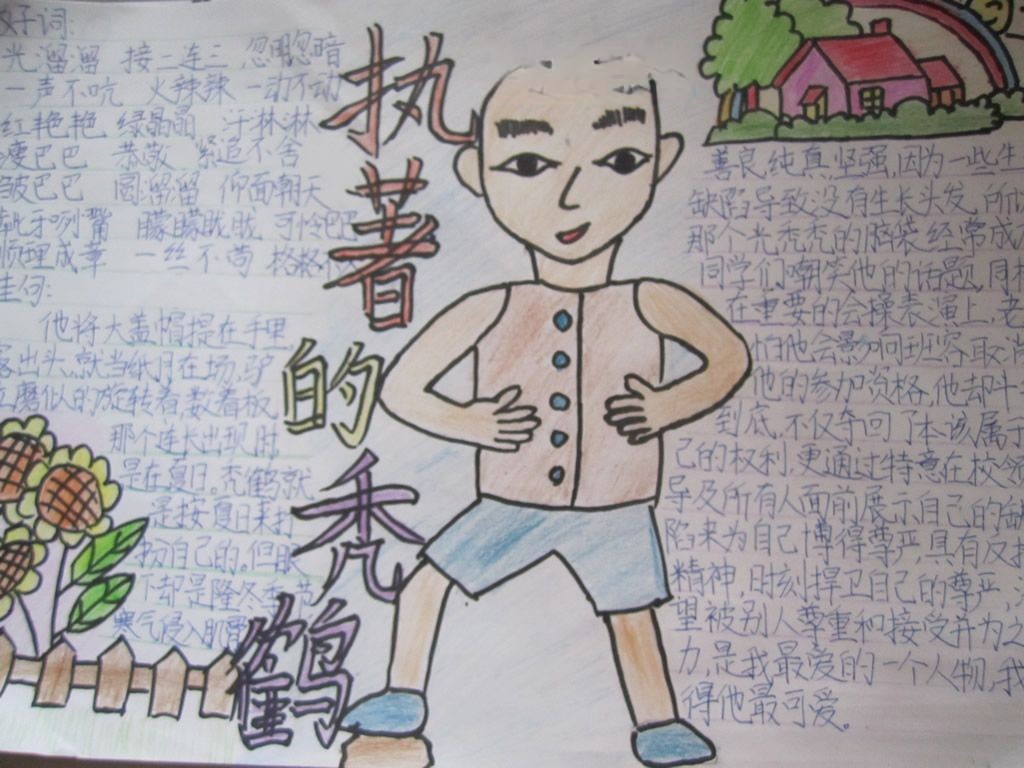 好词:
光溜溜 接二连三 忽明忽暗
一声不吭 火辣辣 一动不动
红艳艳 绿晶晶 汗淋淋
瘦巴巴 恭敬 紧追不舍
皱巴巴 圆溜溜 仰面朝天
龇牙咧嘴 朦朦胧胧 可怜巴巴
顺理成章 一丝不苟 格格不
佳句:
他将大盖帽提在手里
露出头,就当纸月在场,驴
磨似的旋转着数着板
那个连长出现时,
是在夏日。秃鹤就
是按夏日来打
扮自己的。但眼
下却是隆冬季节
寒气侵入肌骨
执著的秃鹤
善良,纯真,坚强,因为一些生
缺陷导致没有生长头发 所以
那个光秃秃的脑袋经常成
同学们嘲笑他的话题,同样
在重要的会操表演上,老
怕他会影响班容取消
他的参加资格,他却斗
到底,不仅夺回了本该属于
己的权利,更通过特意在校领
导及所有人面前展示自己的缺
陷来为自己博得尊严,具有反抗
精神,时刻捍卫自己的尊严,渴
望被别人尊重和接受并为之
力,是我最爱的一个人物,我
得他最可爱。